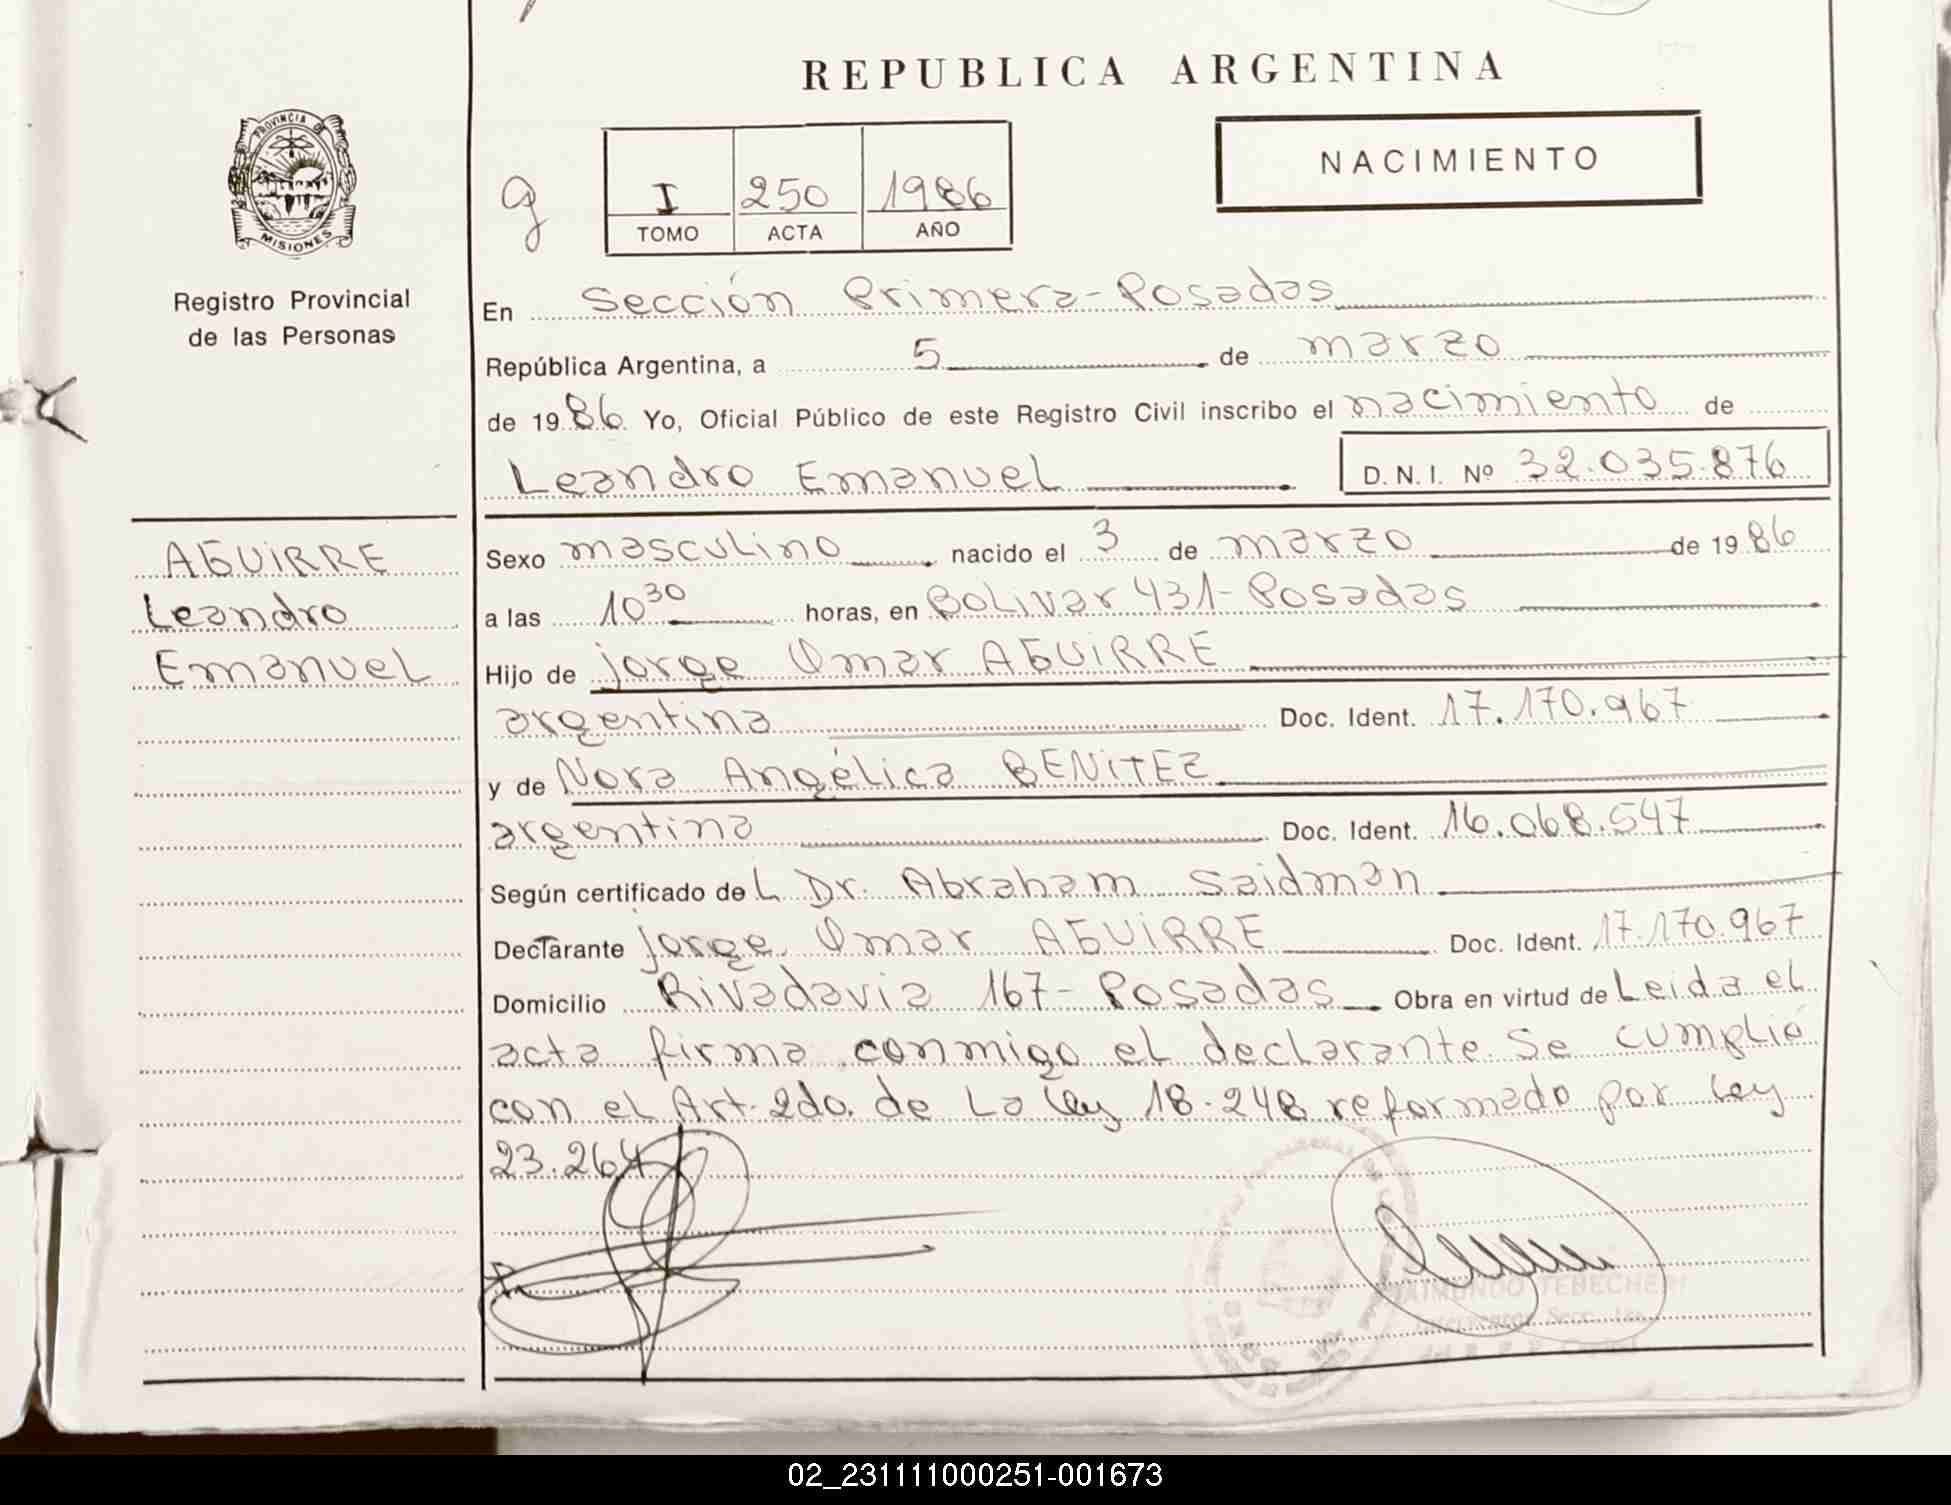 REPUBLICA ARGENTINA
PROVINCIA DE
MISIONES
Registro Provincial
de las Personas
g
I 250 1986
TOMO ACTA AÑO
NACIMIENTO
En Sección Primera-Posadas
República Argentina, a 5 de marzo
de 1986 Yo, Oficial Público de este Registro Civil inscribo el nacimiento de
Leandro Emanuel D.N.I. Nº 32.035.876
AGUIRRE
Leandro
Emanuel
Sexo masculino nacido el 3 de marzo de 1986
a las 10 30 horas, en Bolivar 431-Posadas
Hijo de jorge Omar AGUIRRE
argentina Doc. Ident. 17.170.967
y de Nora Angélica BENITEZ
argentina Doc. Ident. 16.068.547
Según certificado del Dr. Abraham Saidman
Declarante jorge Omar AGUIRRE Doc. Ident. 17.170.967
Domicilio Rivadavia 167-Posadas Obra en virtud de Leida el
acta firma conmigo el declarante. Se cumplió
con el Art. 2do. de la Ley 18.248 reformado por Ley
23.264
RAIMUNDO TEBECHERI
02_231111000251-001673